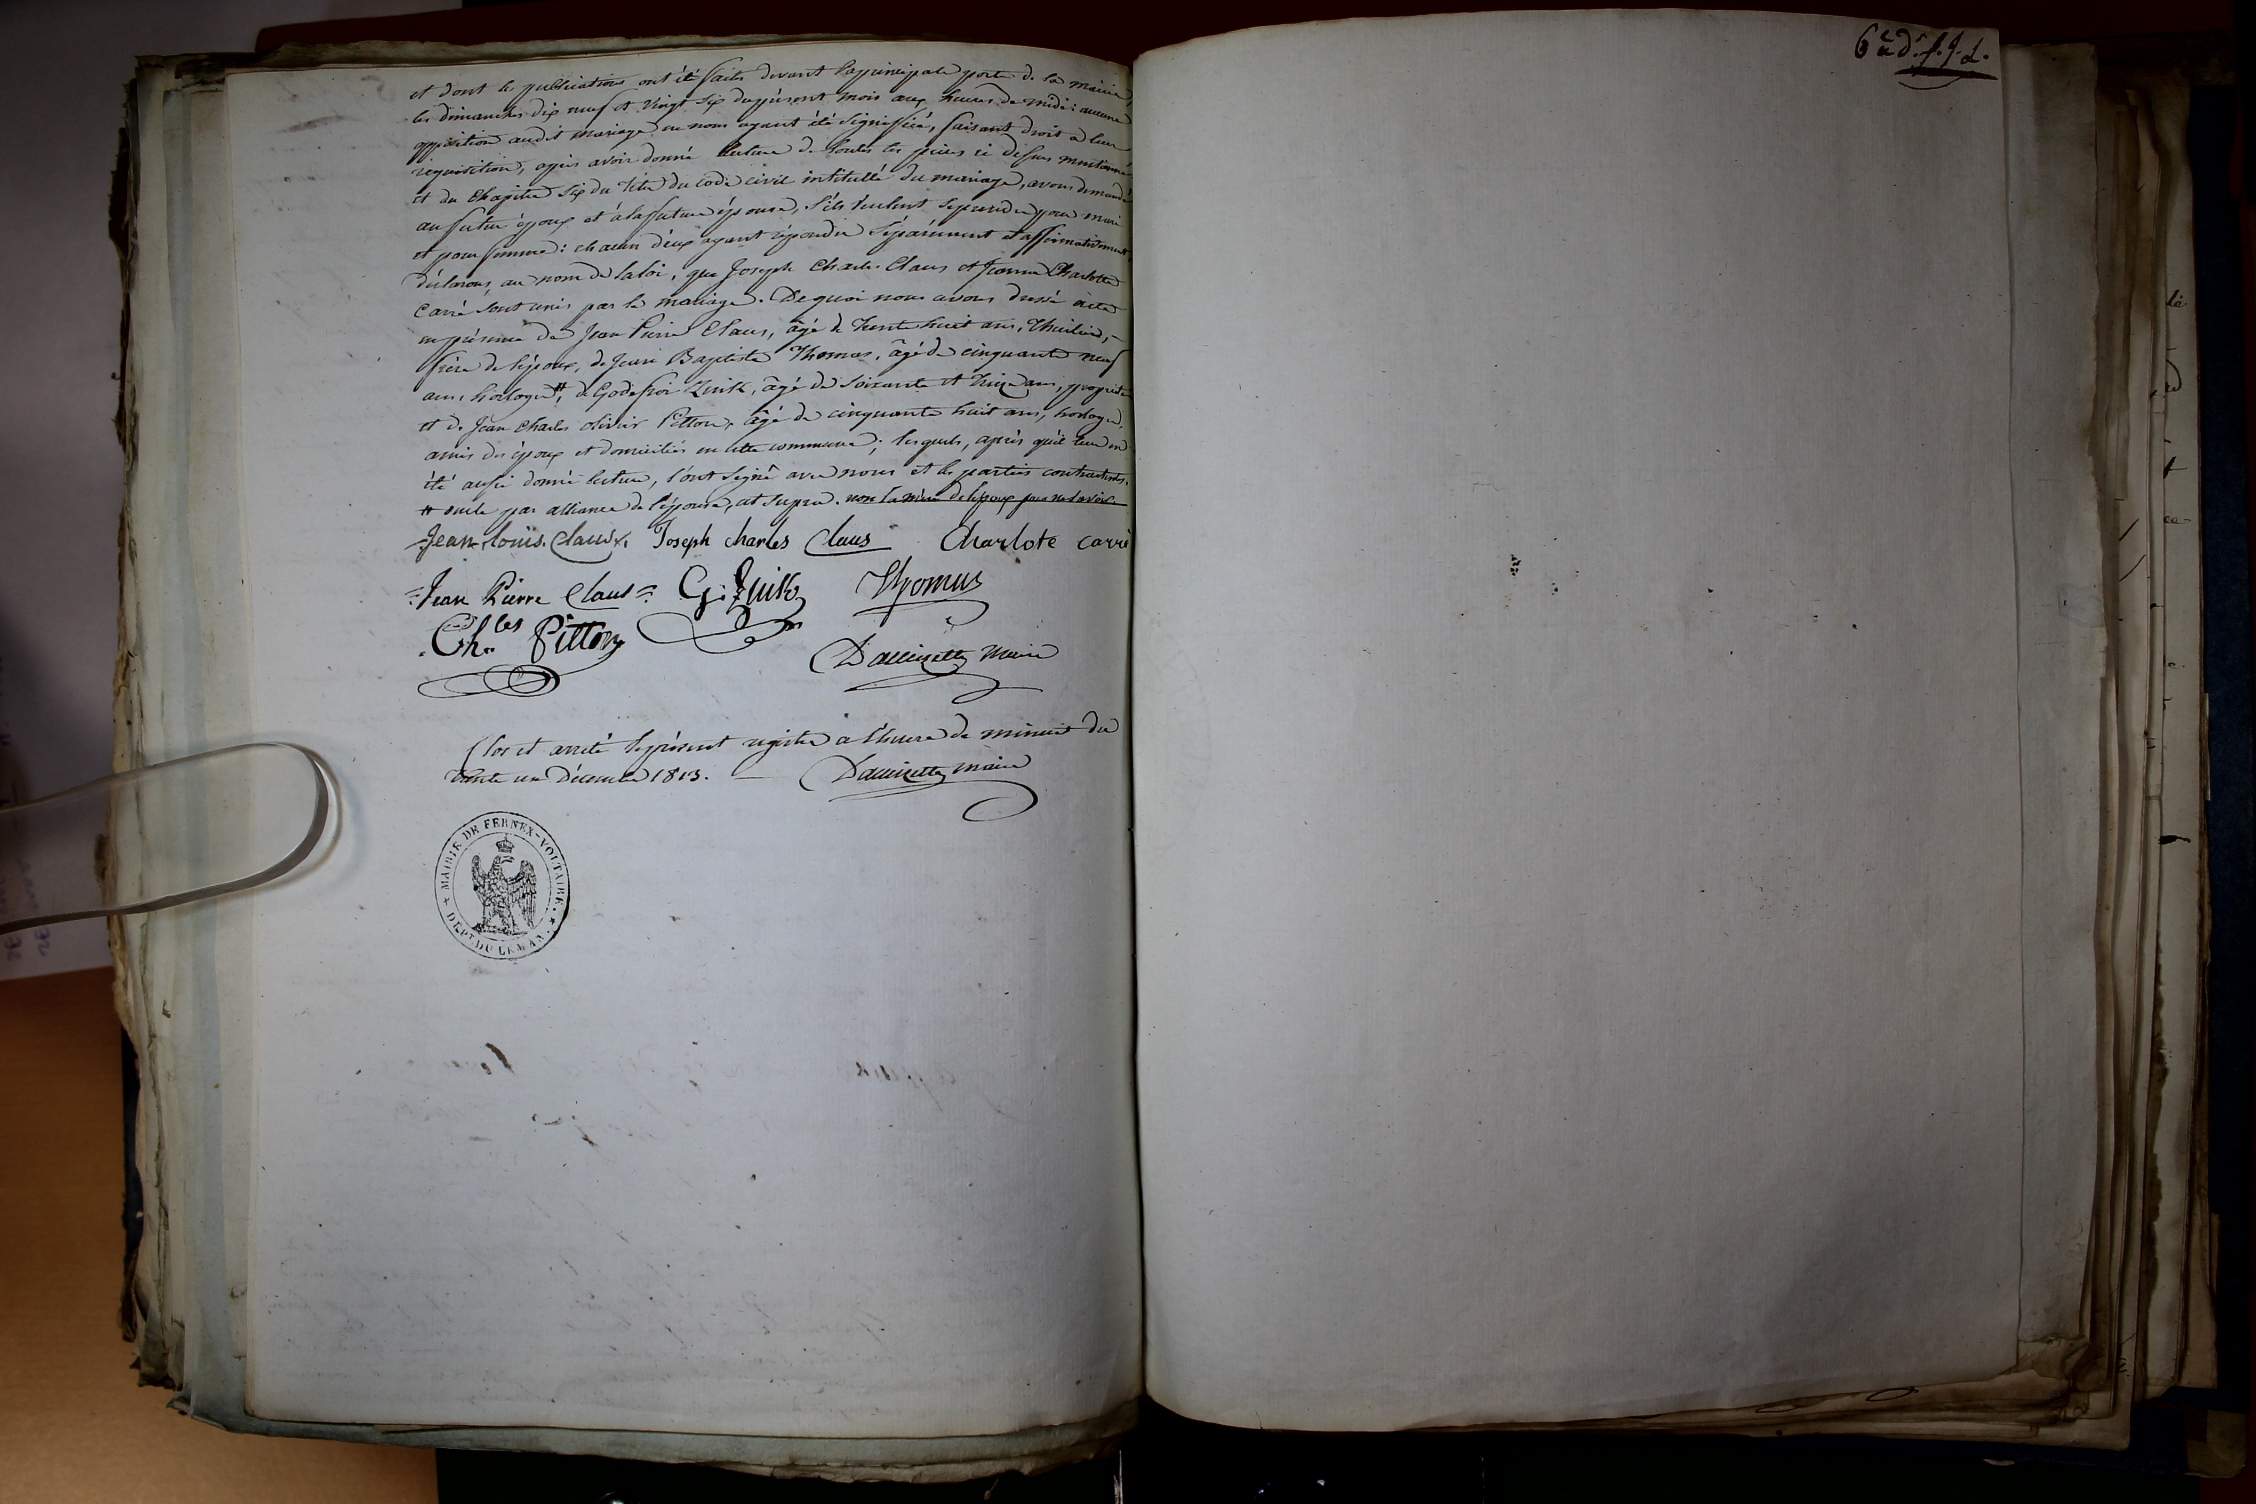 et dont les publications ont été faites devant la principale porte de la mairie,
les dimanches dix neuf et vingt six du présent mois aux heures de midi : aucune
opposition audit mariage ne nous ayant été signifiée, faisant droit à leur
réquisition, après avoir donné lecture de toutes les pièces ci dessus mentionnées
et du chapitre six du titre du code civil intitulé du mariage, avons demandé
au futur époux et à la future épouse, s'ils veulent se prendre pour mari
et pour femme : chacun d'eux ayant répondu séparément et affirmativement
déclarons, au nom de la loi, que Joseph Charles Claus et Jeanne Charlotte
Carré sont unis par le mariage. De quoi nous avons dressé acte
en présence de Jean Pierre Claus, âgé de trente huit ans, Thuilier,
frère de l'époux, de Jean Baptiste Thomas, âgé de cinquante neuf
ans, horloger #, de Godefroi Zuik, âgé de soixante et treize ans, propriétre
et de Jean Charles olivier Pitton, âgé de cinquante huit ans, horloger,
amis des époux et domiciliés en cette commune ; lesquels, après qu'il leur en
été aussi donné lecture, l'ont signé avec nous et les parties contractantes.
# oncle par alliance de l'épouse, ut supra. non la mère de l'époux pour ne savoir
Jean louis. Claus. Joseph charles Claus Charlote carré
Jean Pierre Claus G: Zuik Thomas
Ch.les Pitton
maire
Clos et arrêté le présent registre à l'heure de minuit du
trente un Décembre 1813. maire
MAIRIE DE FERNEX-VOLTAIRE.
DEPT. DU LEMAN.